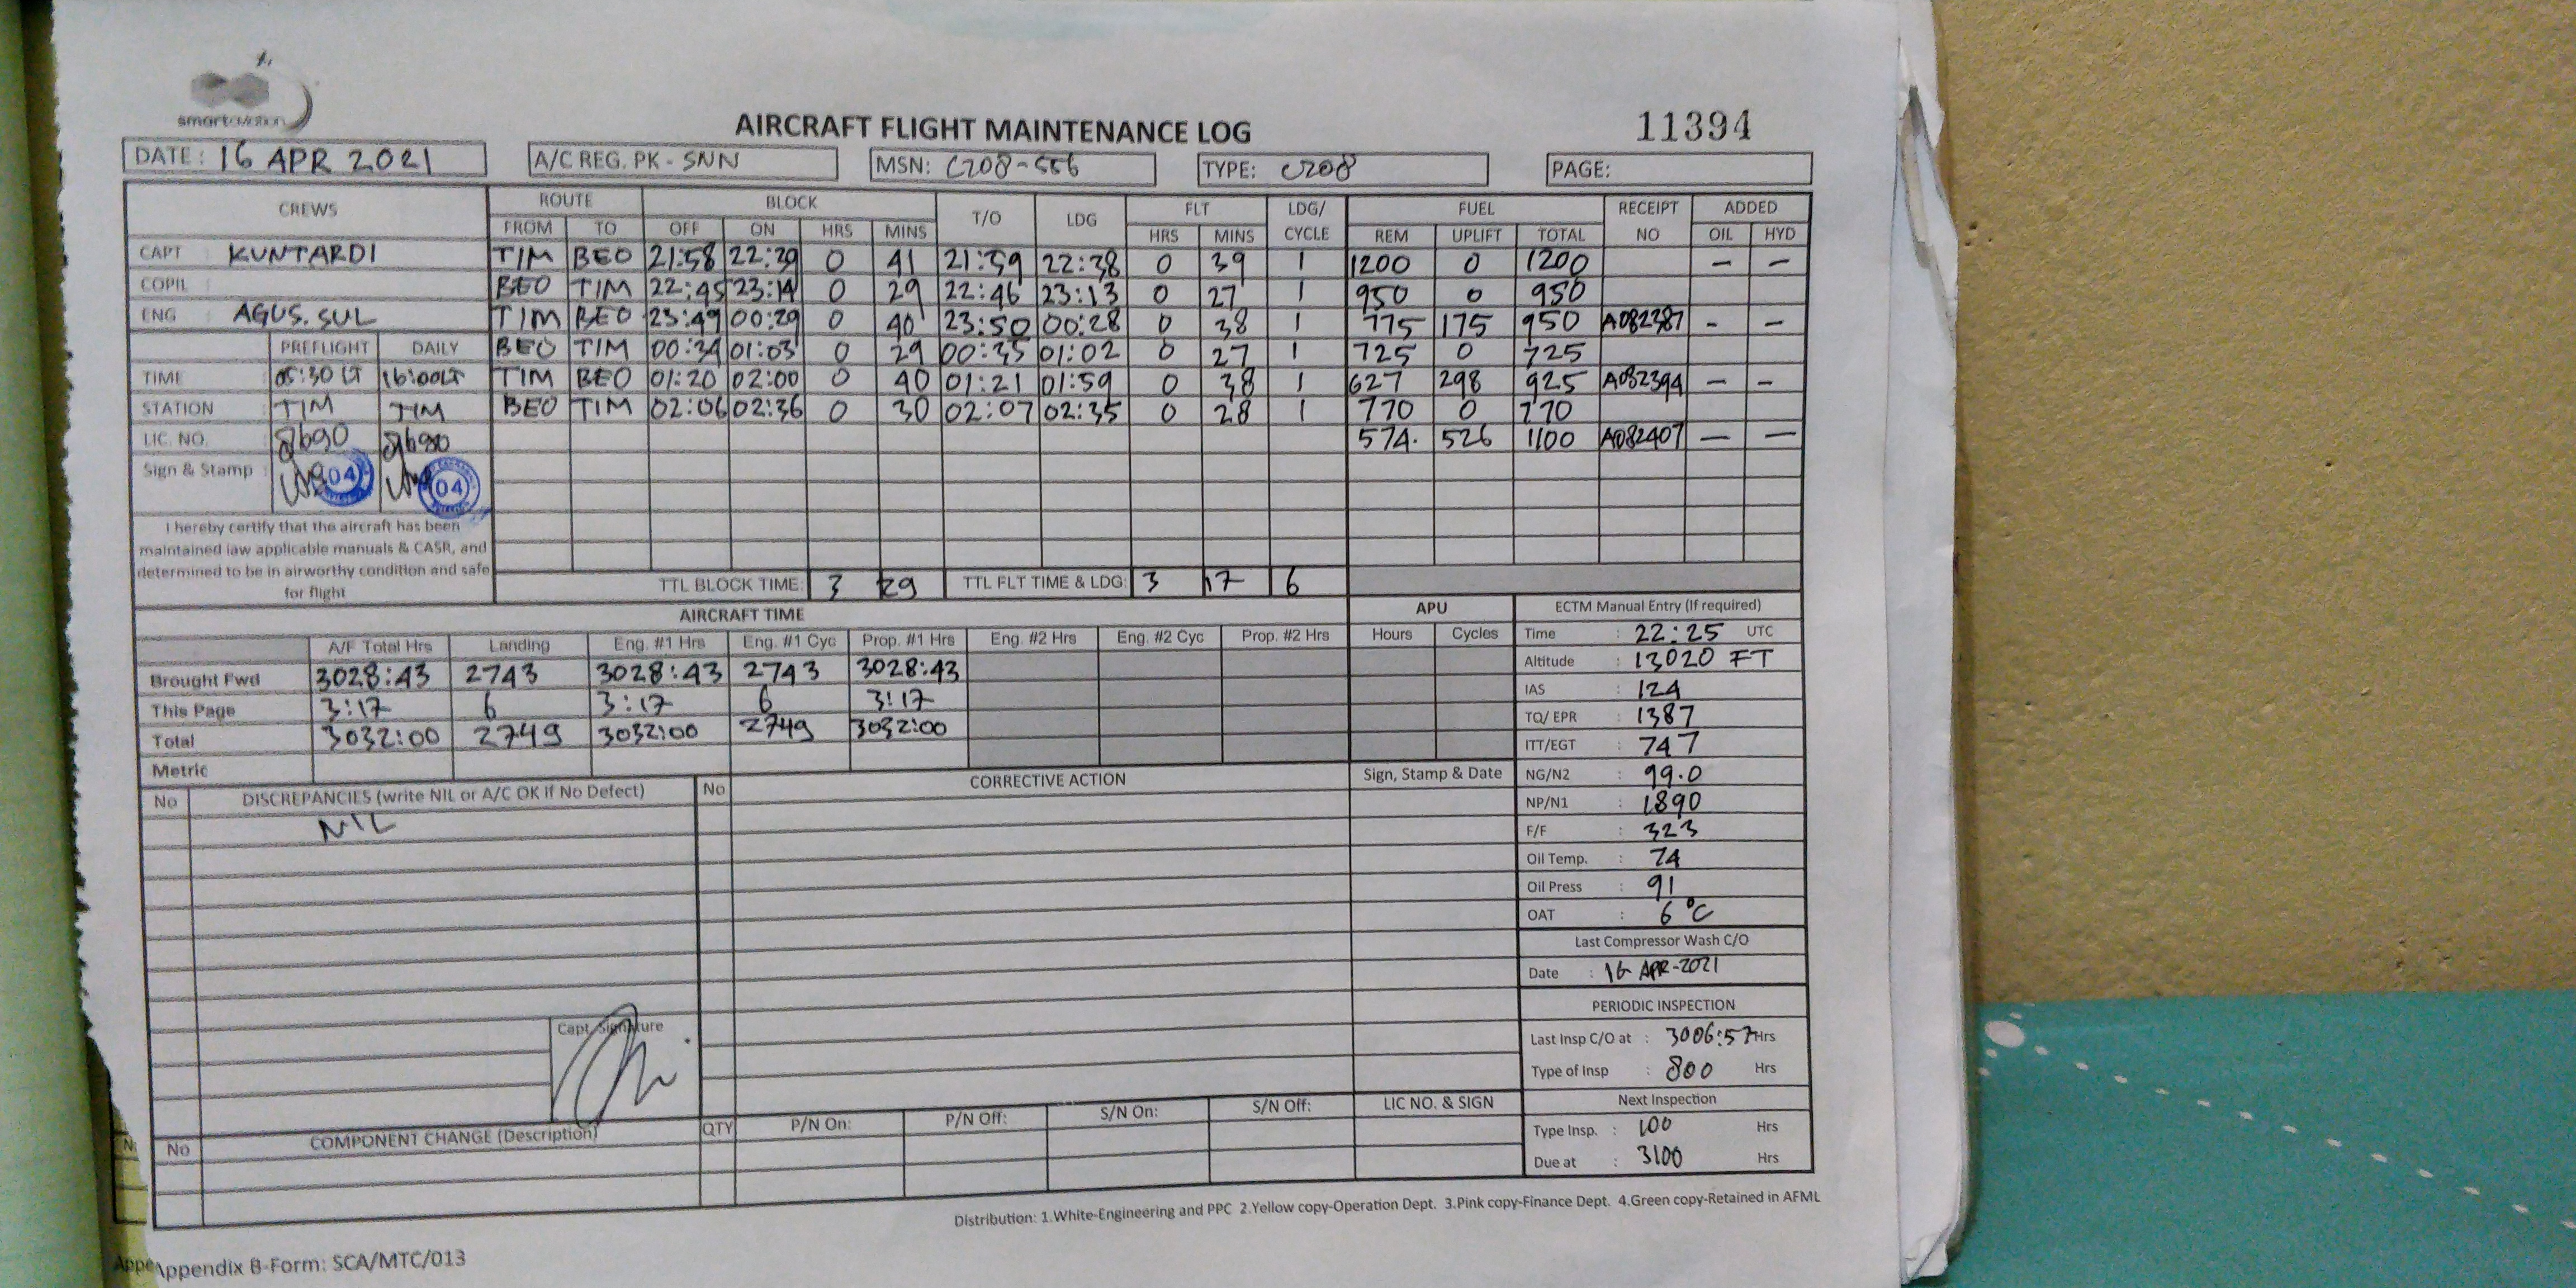 smartaviation
AIRCRAFT FLIGHT MAINTENANCE LOG
11394
DATE: 16 APR 2021 A/C REG. PK - SNN MSN: C208-556 TYPE: C208 PAGE:
CREWS ROUTE BLOCK T/O LDG FLT LDG/ CYCLE FUEL RECEIPT NO ADDED
FROM TO OFF ON HRS MINS HRS MINS REM UPLIFT TOTAL OIL HYD
CAPT : KUNTARDI TIM BEO 21:58 22:39 0 41 21:59 22:38 0 39 1 1200 0 1200 – –
COPIL BEO TIM 22:45 23:14 0 29 22:46 23:13 0 27 1 950 0 950
ENG : AGUS. SUL TIM BEO 23:49 00:29 0 40 23:50 00:28 0 38 1 775 175 950 A082387 – –
PREFLIGHT DAILY BEO TIM 00:34 01:03 0 29 00:35 01:02 0 27 1 725 0 725
TIME : 05:30 LT 16:00LT TIM BEO 01:20 02:00 0 40 01:21 01:59 0 38 1 627 298 925 A082394 – –
STATION : TIM TIM BEO TIM 02:06 02:36 0 30 02:07 02:35 0 28 1 770 0 770
LIC. NO. 8690 8690 574. 526 1100 A082407 – –
Sign & Stamp : 04 04
I hereby certify that the aircraft has been
maintained iaw applicable manuals & CASR, and
determined to be in airworthy condition and safe
for flight
TTL BLOCK TIME: 3 29 TTL FLT TIME & LDG: 3 17 6
AIRCRAFT TIME APU
A/F Total Hrs Landing Eng. #1 Hrs Eng. #1 Cyc Prop. #1 Hrs Eng. #2 Hrs Eng. #2 Cyc Prop. #2 Hrs Hours Cycles
Brought Fwd 3028:43 2743 3028:43 2743 3028:43
This Page 3:17 6 3:17 6 3:17
Total 3032:00 2749 3032:00 2749 3032:00
Metric
ECTM Manual Entry (If required)
Time : 22:25 UTC
Altitude : 13020 FT
IAS : 124
TQ/ EPR : 1387
ITT/EGT : 747
NG/N2 : 99.0
NP/N1 : 1890
F/F : 323
Oil Temp. : 74
Oil Press : 91
OAT : 6°C
Last Compressor Wash C/O
Date : 16 APR-2021
PERIODIC INSPECTION
Last Insp C/O at : 3006:57 Hrs
Type of Insp : 800 Hrs
Next Inspection
Type Insp. : 100 Hrs
Due at : 3100 Hrs
No DISCREPANCIES (write NIL or A/C OK if No Defect) No CORRECTIVE ACTION Sign, Stamp & Date
NIL
Capt. Signature
No COMPONENT CHANGE (Description) QTY P/N On: P/N Off: S/N On: S/N Off: LIC NO. & SIGN
Distribution: 1.White-Engineering and PPC 2.Yellow copy-Operation Dept. 3.Pink copy-Finance Dept. 4.Green copy-Retained in AFML
Appendix B-Form: SCA/MTC/013